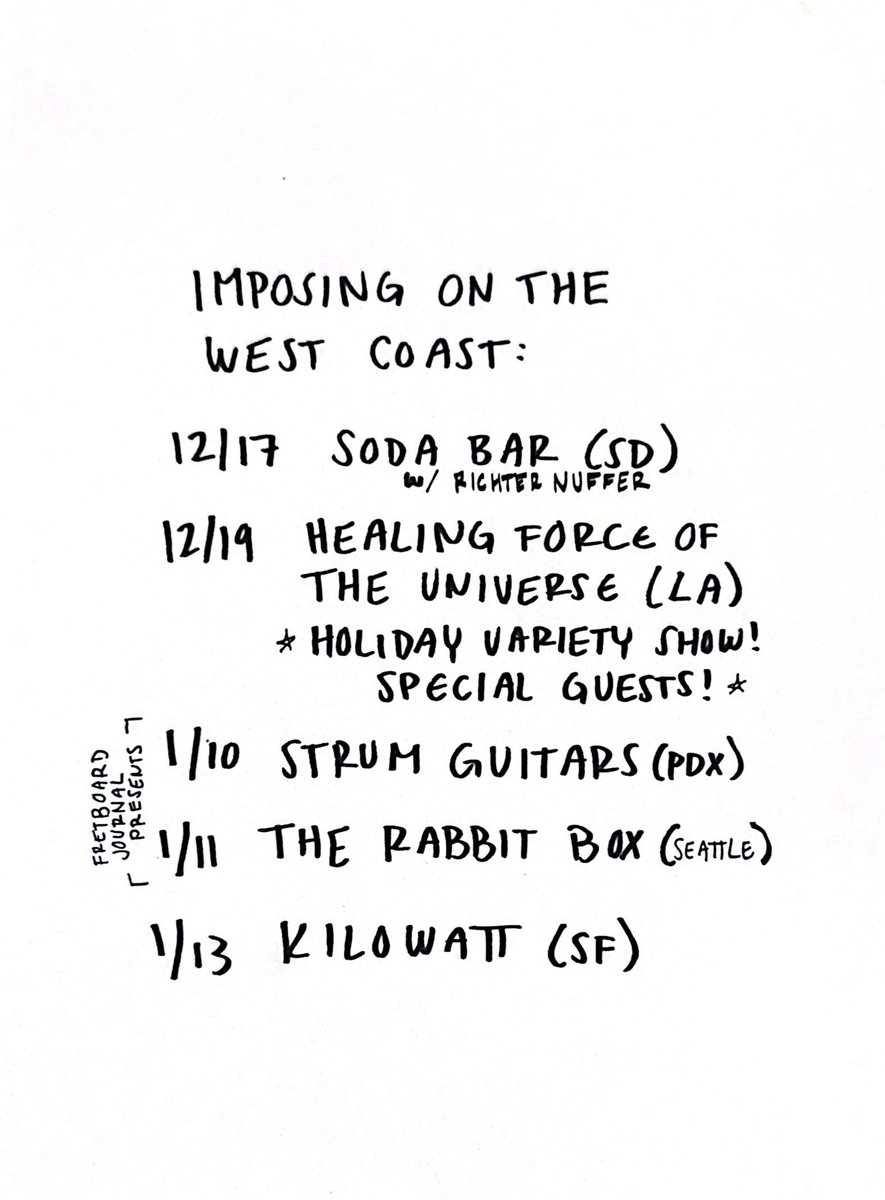 IMPOSING ON THE
WEST COAST:
12/17 SODA BAR (SD)
w/ RICHTER NUFFER
12/19 HEALING FORCE OF
THE UNIVERSE (LA)
* HOLIDAY VARIETY SHOW!
SPECIAL GUESTS! *
FRETBOARD
JOURNAL
PRESENTS
1/10 STRUM GUITARS (PDX)
1/11 THE RABBIT BOX (SEATTLE)
1/13 KILOWATT (SF)